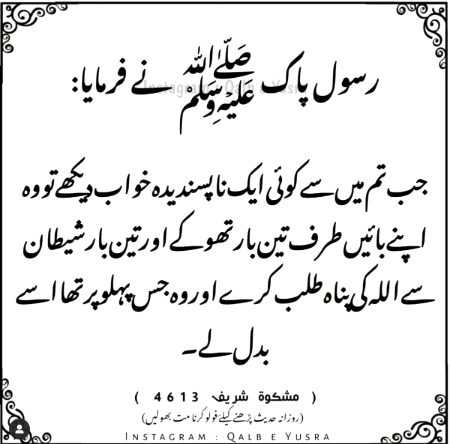 رسول پاک ﷺ نے فرمایا:
جب تم میں سے کوئی ایک ناپسندیدہ خواب دیکھے تو وہ
اپنے بائیں طرف تین بار تھوکے اور تین بار شیطان
سے اللہ کی پناہ طلب کرے اور وہ جس پہلو پر تھا اسے
بدل لے۔
( مشکوۃ شریف 4613 )
(روزانہ حدیث پڑھنے کیلئے فولو کرنا مت بھولیں)
Instagram : Qalb e Yusra